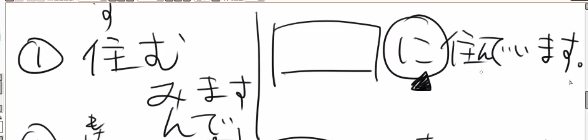 す
① 住む
みます
んで
に 住んでいます。